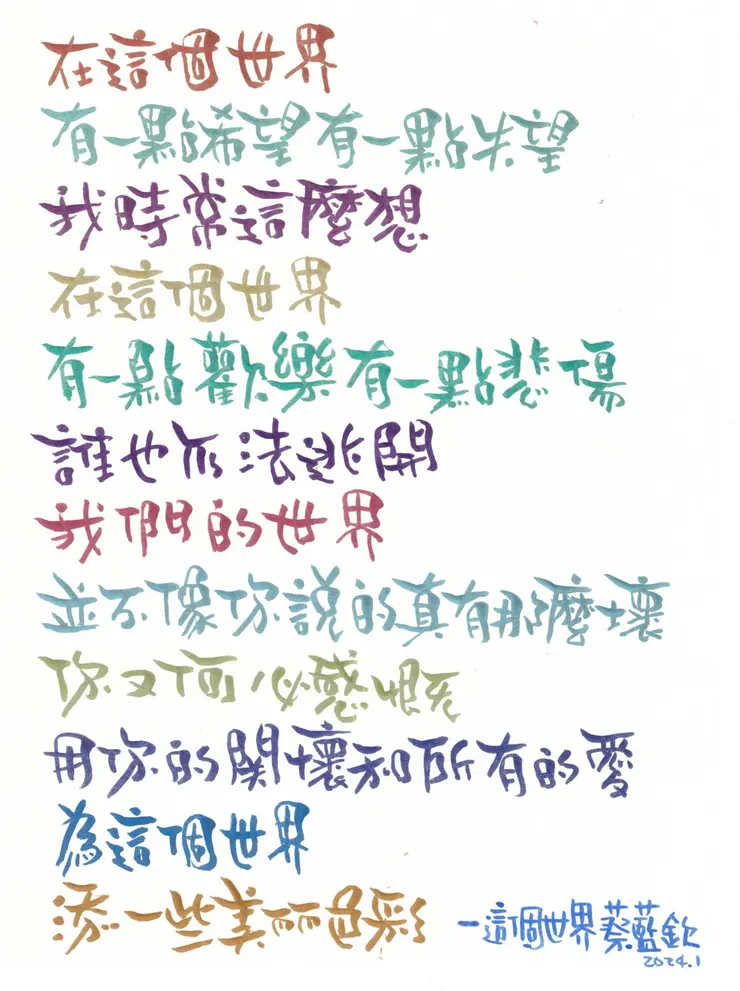 在這個世界
有一點希望有一點失望
我時常這麼想
在這個世界
有一點歡樂有一點悲傷
誰也无法逃開
我們的世界
並不像你說的真有那麼壞
你又何必感慨
用你的關懷和所有的愛
為這個世界
添一些美丽色彩
—這個世界 蔡藍欽
2024.1